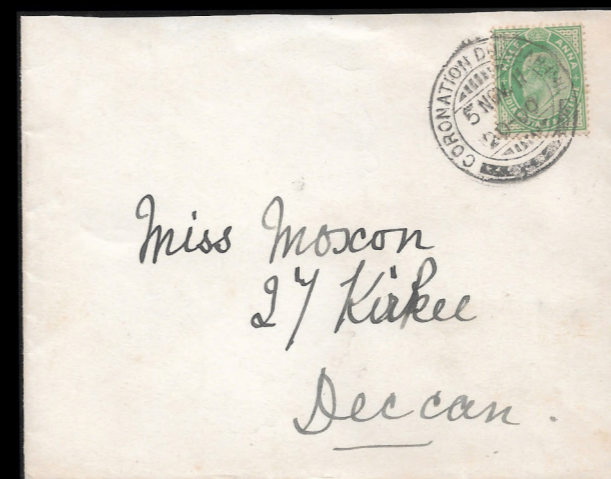 CORONATION D
5 NOV 11
HALF ANNA
Miss Moxon
27 Kirkee
Deccan.